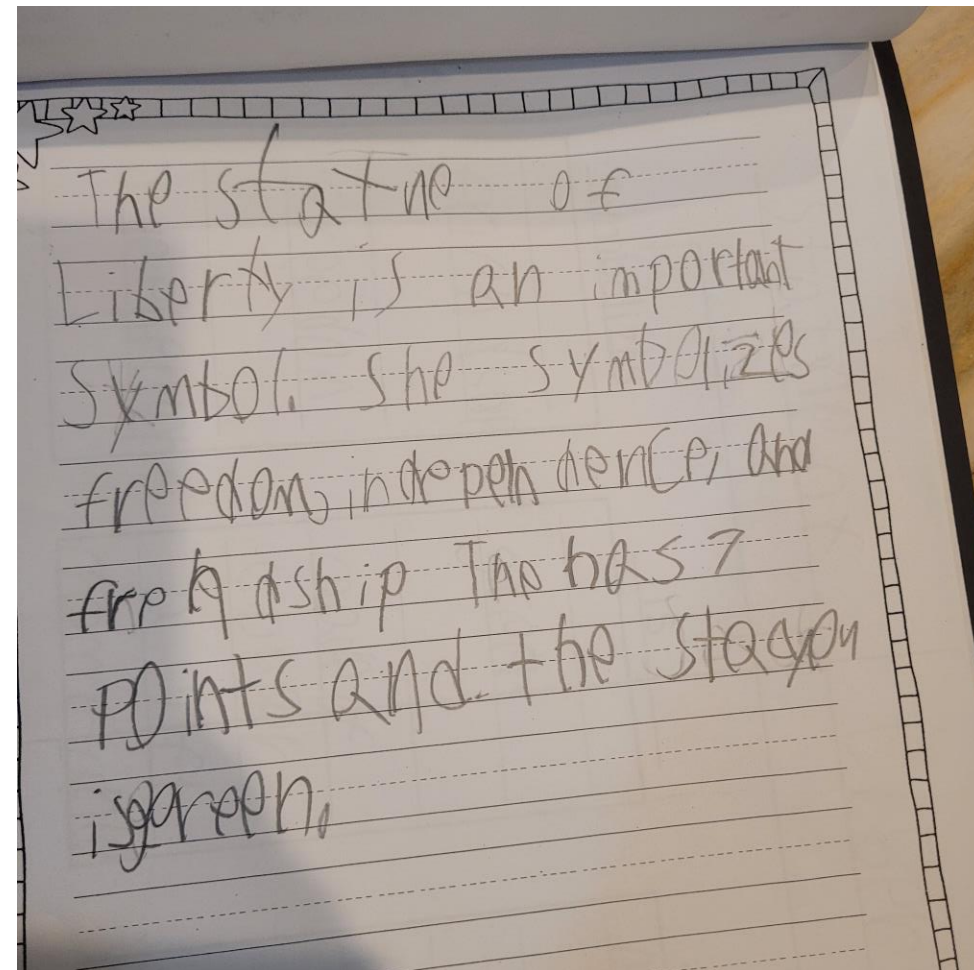 The statue of
Liberty is an important
Symbol. She symbolizes
freedom, independence, and
frendship The has 7
points and the
isgreen.